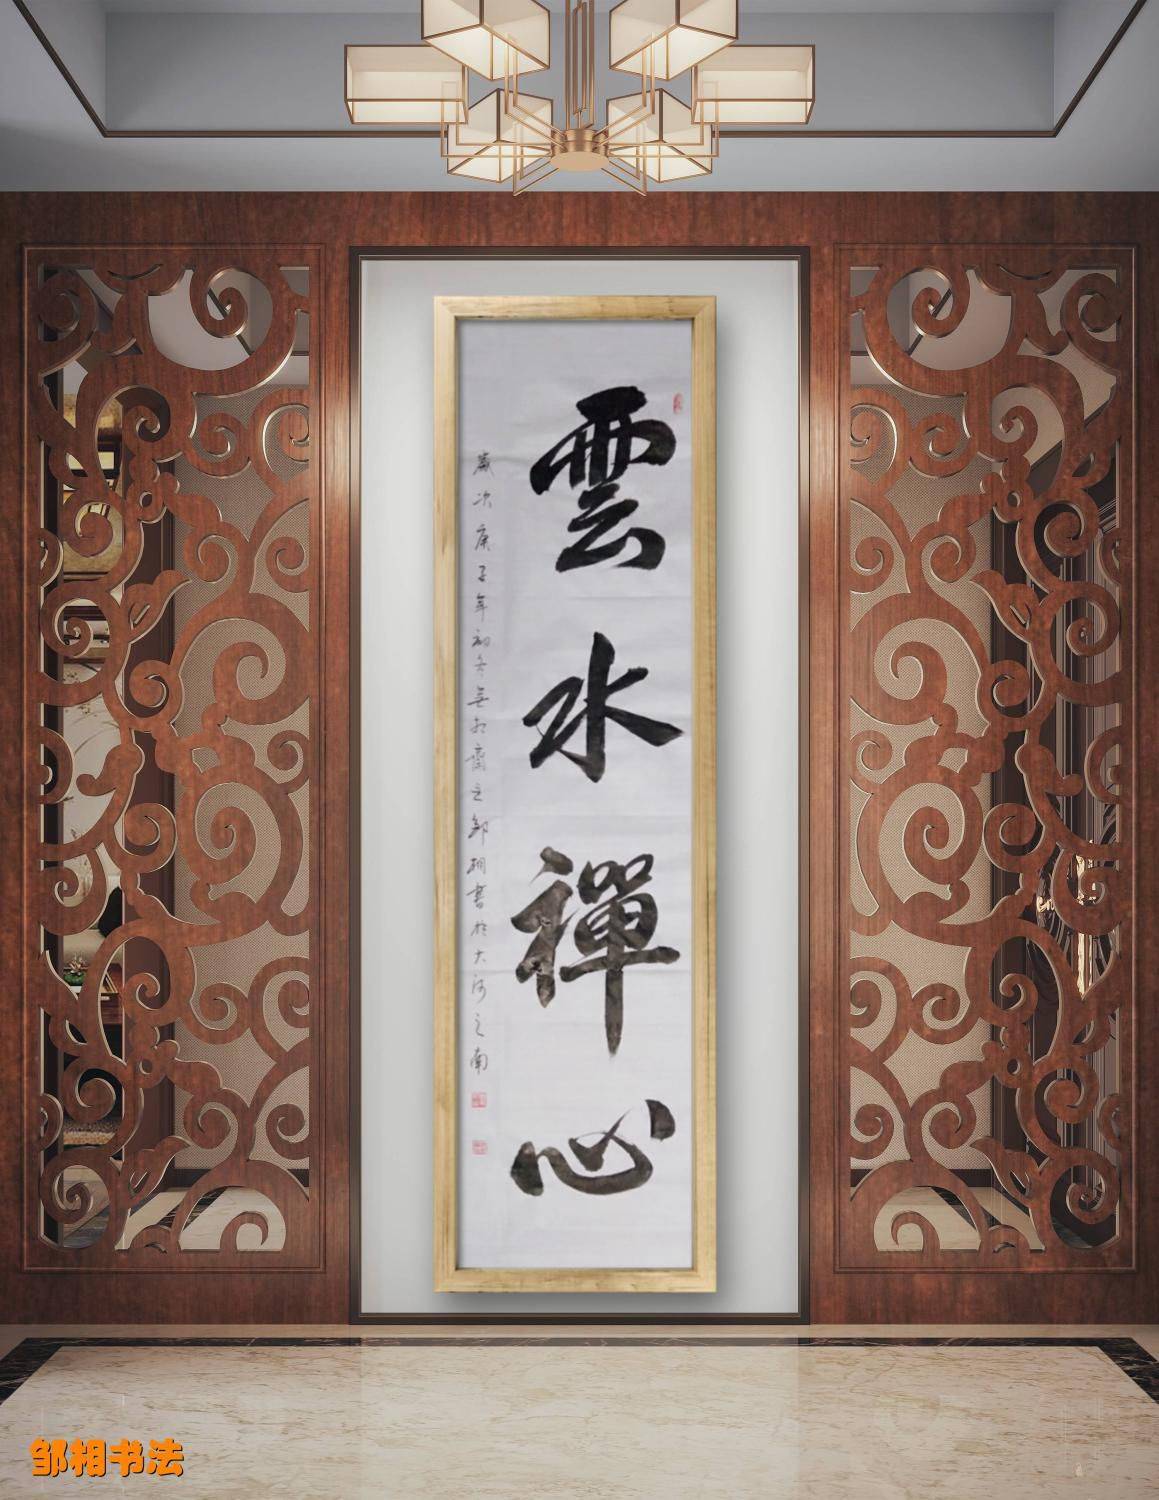 雲水禪心
歲次庚子年初冬無相齋主鄒相書於大河之南
邹相书法